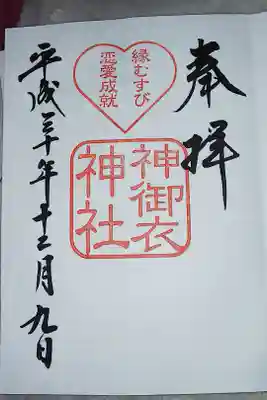 奉拝
縁むすび
恋愛成就
神御衣
神社
平成三十年十二月九日